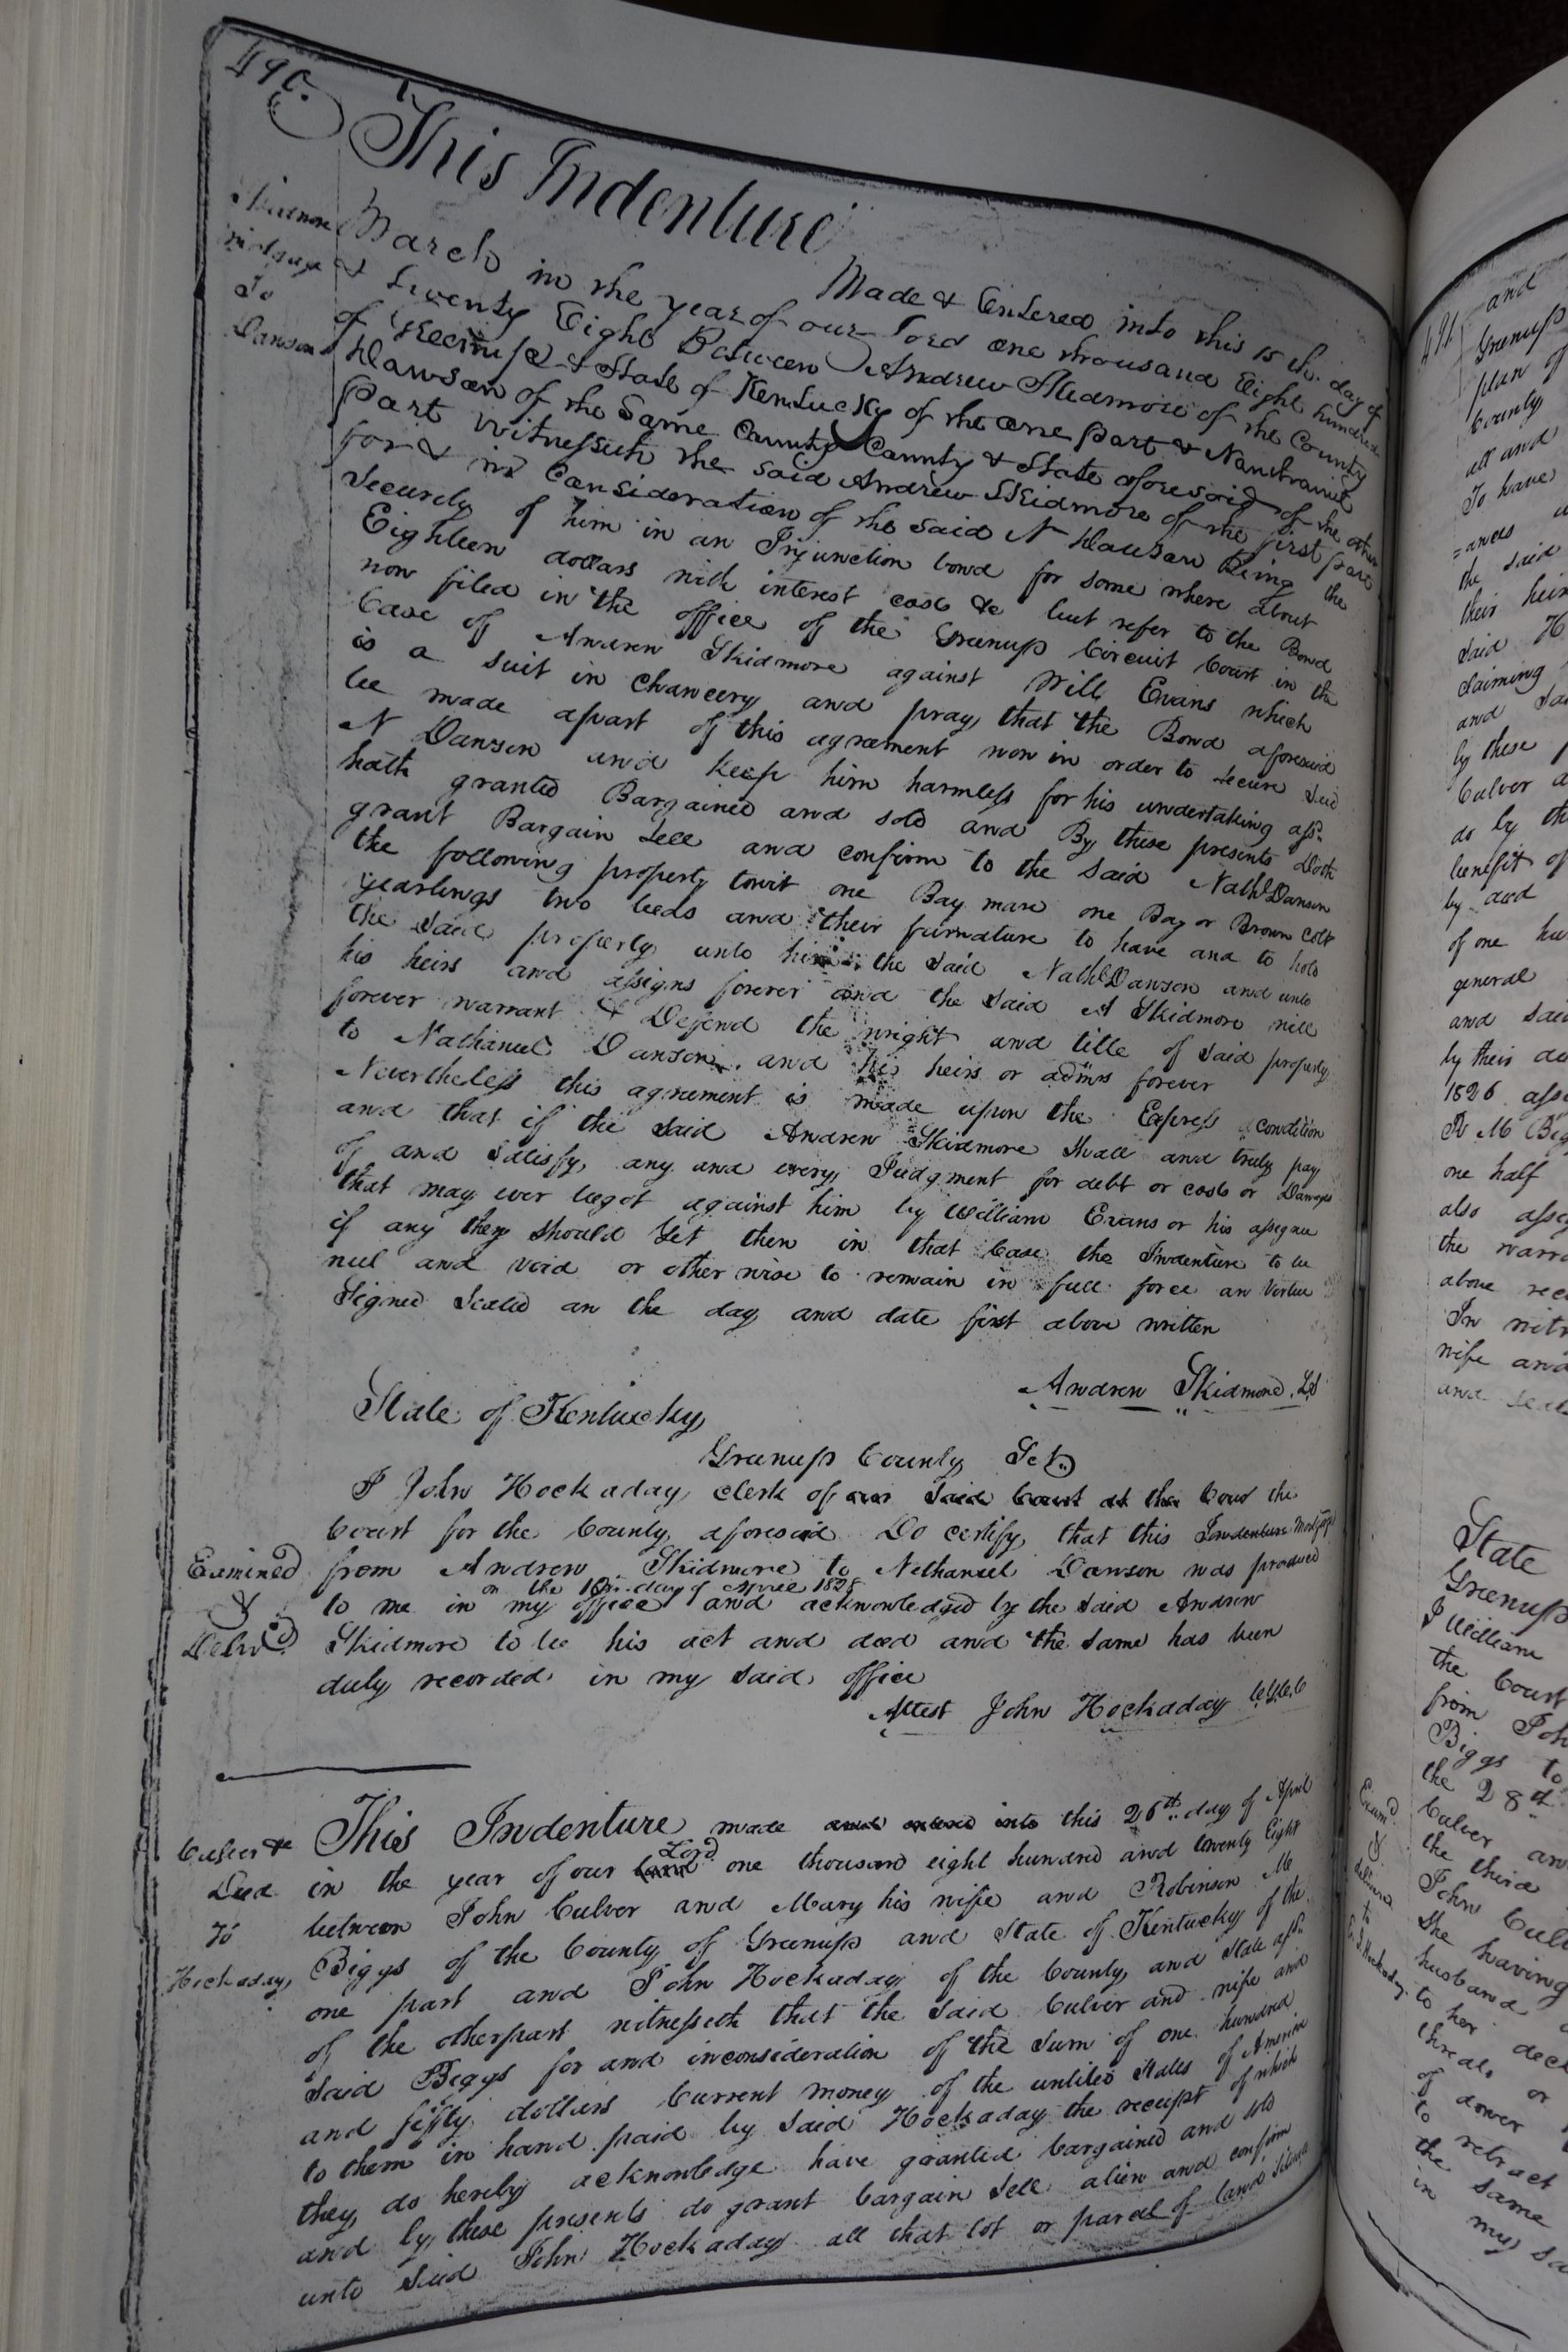 490.
This Indenture
Made & Entered into this 15th. day of
March in the year of our Lord one thousand Eight hundred
& Twenty Eight Between Andrew Skidmore of the County
of Greenup & State of Kentucky of the one part & Nanthaniel
Dawson of the Same County County & State aforesaid of the other
part Witnesseth the said Andrew Skidmore of the first part
for & in Consideration of the said N Dawson Being the
Security of him in an Injunction bond for some where about
Eighteen dollars with interest cost &c but refer to the Bond
now filed in the office of the Greenup Circuit Court in the
Case of Andrew Skidmore against Will Evans which
is a suit in chancery and pray that the Bond aforesaid
be made apart of this agreement now in order to secure said
N Dawson and keep him harmless for his undertaking afsd.
hath granted Bargained and sold and By these presents Doth
grant Bargain Sell and confirm to the said Nathl Dawson
the following property towit one Bay mare one Bay or Brown colt
yearlings two beds and their furnature to have and to hold
the Said property unto him the Said Nathl Dawson and unto
his heirs and assigns forever and the Said A Skidmore will
forever warrant & Defend the wright and title of said property
to Nathaniel Dawson and his heirs or admrs forever
Nevertheless this agreement is made upon the Express condition
and that if the Said Andrew Skidmore Shall and truly pay
of and satisfy any and every Judgment for debt or costs or Damages
that may ever begot against him by William Evans or his assignee
if any they should Get then in that Case the Indenture to be
null and void or other wise to remain in full force an Vertue
Signed Sealed an the day and date first above written
Andrew Skidmore. LS
State of Kentucky
Greenup County Sct.
I John Hockaday clerk of our said Court at the Cour the
Court for the County aforesaid Do certify that this Indenture Mortgage
from Andrew Skidmore to Nathaniel Dawson was produced
on the 10th day of April 1828
to me in my office and acknowledged by the said Andrew
Skidmore to be his act and deed and the same has been
duly recorded in my said office
Attest John Hockaday C.G.C.C
Examined
&
Delivd.
Skidmore
Mortgage
To
Dawson
Culver &c
Deed
To
Hockaday
This Indenture made and entered into this 26th day of April
in the year of our Land Lord one thousand eight hundred and twenty Eight
between John Culver and Mary his wife and Robinson M
Biggs of the County of Greenup and State of Kentucky of the
one part and John Hockaday of the County and State afsd.
of the otherpart witnesseth that the said Culver and wife and
Said Biggs for and inconsideration of the sum of one hundred
and fifty dollars Current money of the united States of America
to them in hand paid by said Hockaday the receipt of which
they do hereby acknowledge have granted bargained and sold
and by these presents do grant bargain Sell alien and confirm
unto Said John Hockaday all that lot or parcel of land
491
and
Greenup
plan of
County
all and
To have
=ances
the said
their heirs
Said H
claiming
and
by these
Culver
do by
benefit of
by and
of one
general
and
by their
1826
R M
one half
also
the
above
In
wife and
and
State
Greenup
I William
the Court
from John
Biggs to
the 28th
Culver and
the third
John
She having
husband
to her
threats or
of dower
to retract
the same
in my
Examd.
&
delivered
to
J Hockaday